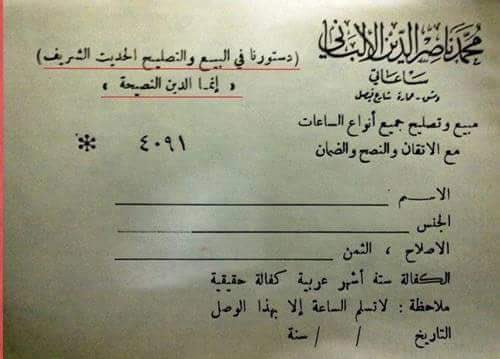 محمد ناصر الدين الألباني
ساعاتي
دمشق - عمارة شارع فيصل
(دستورنا في البيع والتصليح الحديث الشريف)
« إنما الدين النصيحة »
مبيع وتصليح جميع أنواع الساعات
مع الاتقان والنصح والضمان
٤٠٩١ *
الاسم
الجنس
الاصلاح ، الثمن
الكفالة ستة أشهر عربية كفالة حقيقية
ملاحظة : لا تسلم الساعة إلا بهذا الوصل
التاريخ / / سنة